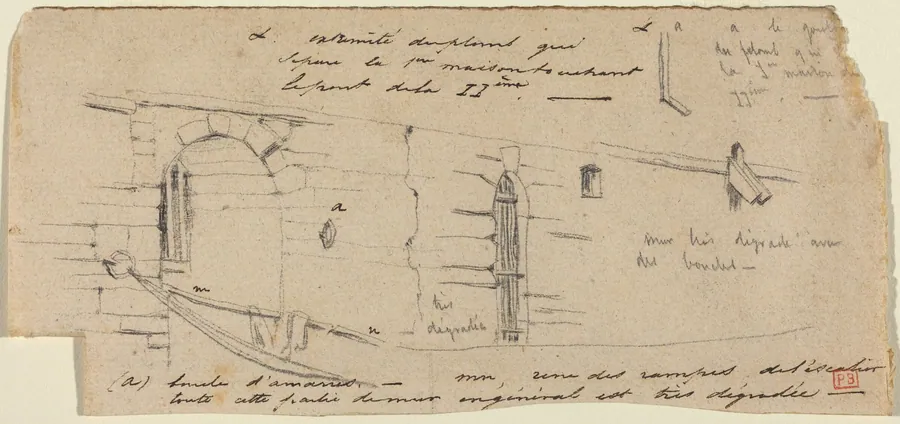 L. extremité du plomb qui
separe la 1ere maison touchant
le pont de la IIème. —
L a
a le
du plomb qui
la 1ere maison
IIème. —
a
m
n
très
dégradée
mur très dégradé avec
des boucles —
(a) boucle d'amarres. — mn, une des rampes de l'escalier
toute cette partie de mur en général est très dégradée —
PB